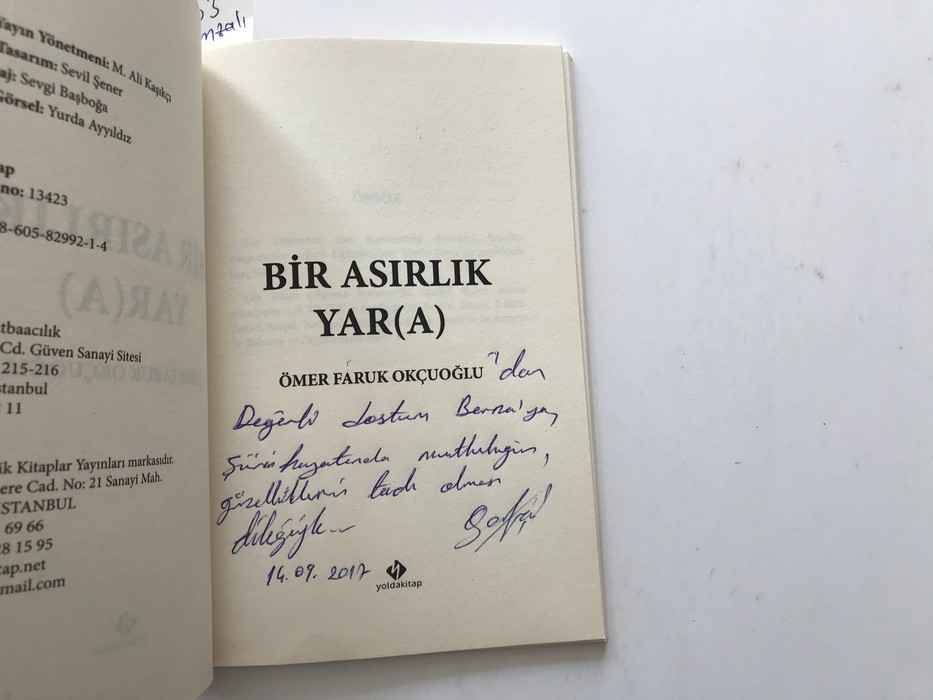 53
mzalı
Yayın Yönetmeni: M. Ali Kaşıkçı
Tasarım: Sevil Şener
aj: Sevgi Başboğa
Görsel: Yurda Ayyıldız
ap
no: 13423
8-605-82992-1-4
tbaacılık
Cd. Güven Sanayi Sitesi
215-216
stanbul
11
ik Kitaplar Yayınları markasıdır.
ere Cad. No: 21 Sanayi Mah.
İSTANBUL
69 66
28 15 95
tap.net
mail.com
BİR ASIRLIK
YAR(A)
ÖMER FARUK OKÇUOĞLU 'dan
Değerli dostum Berna'ya,
Şiirin hayatında mutluluğun,
güzelliklerin tadı olması
dileğiyle...
14.09.2017
yoldakitap